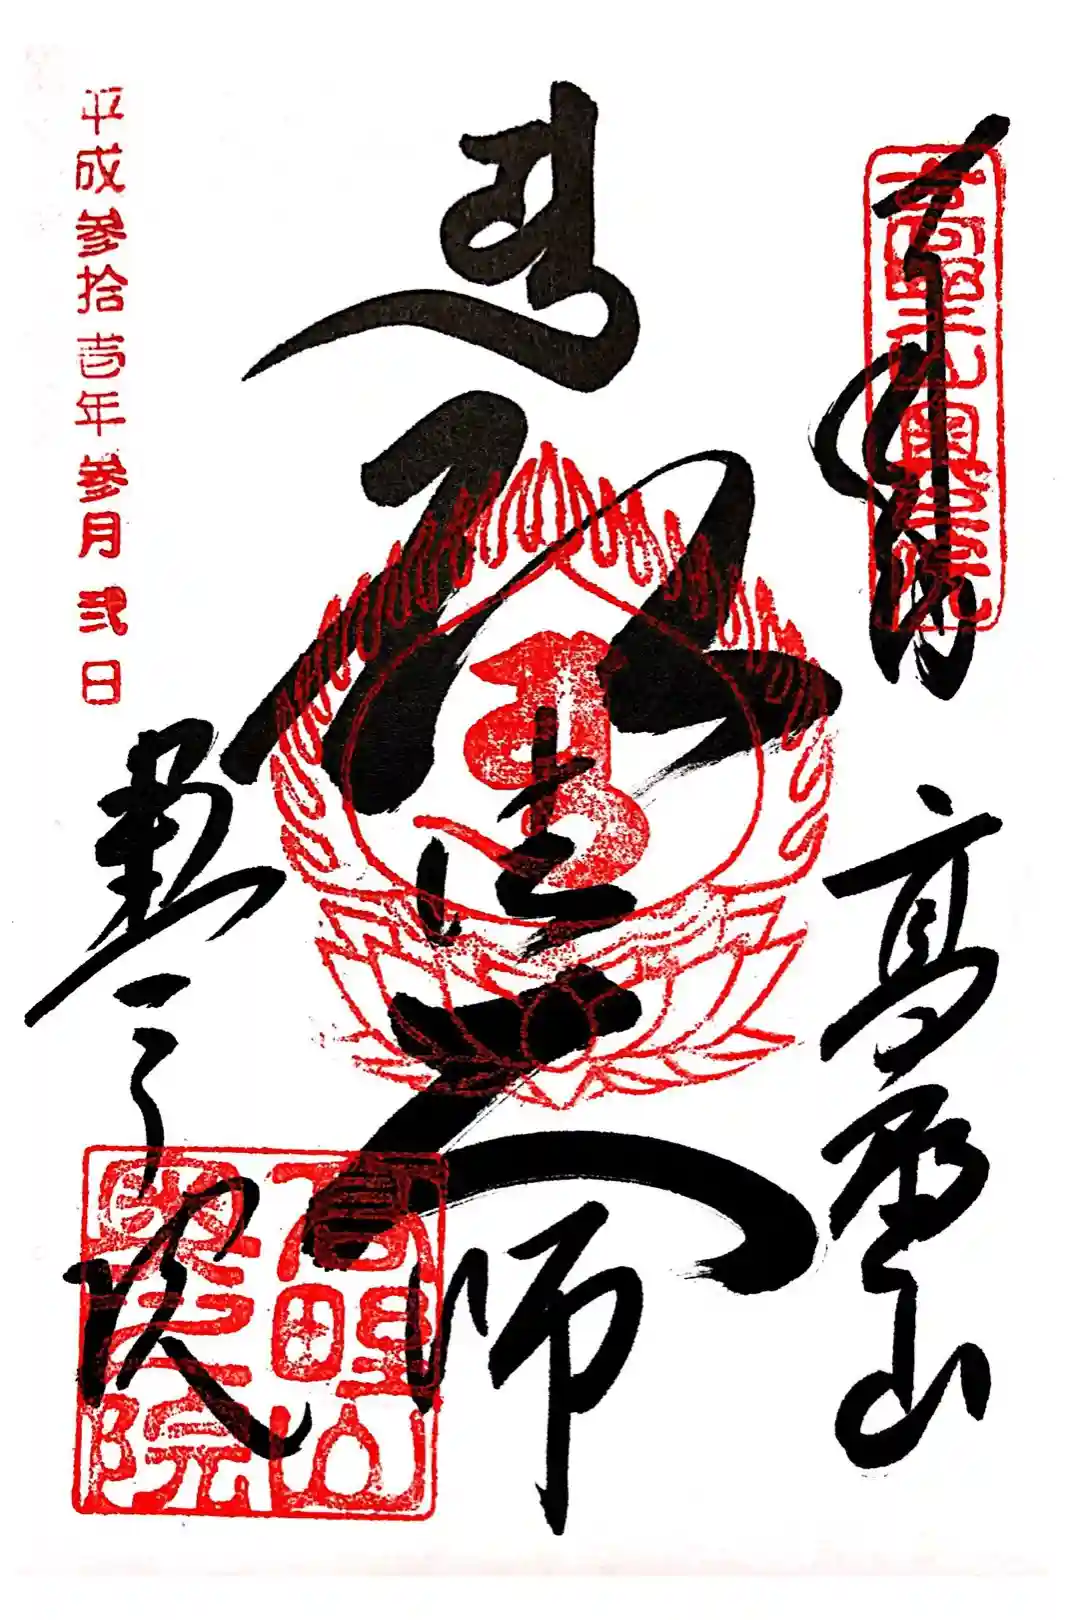 高野山奥之院
高野山
弘法大師
奥之院
高野山
奥之院
平成参拾壱年参月弐日